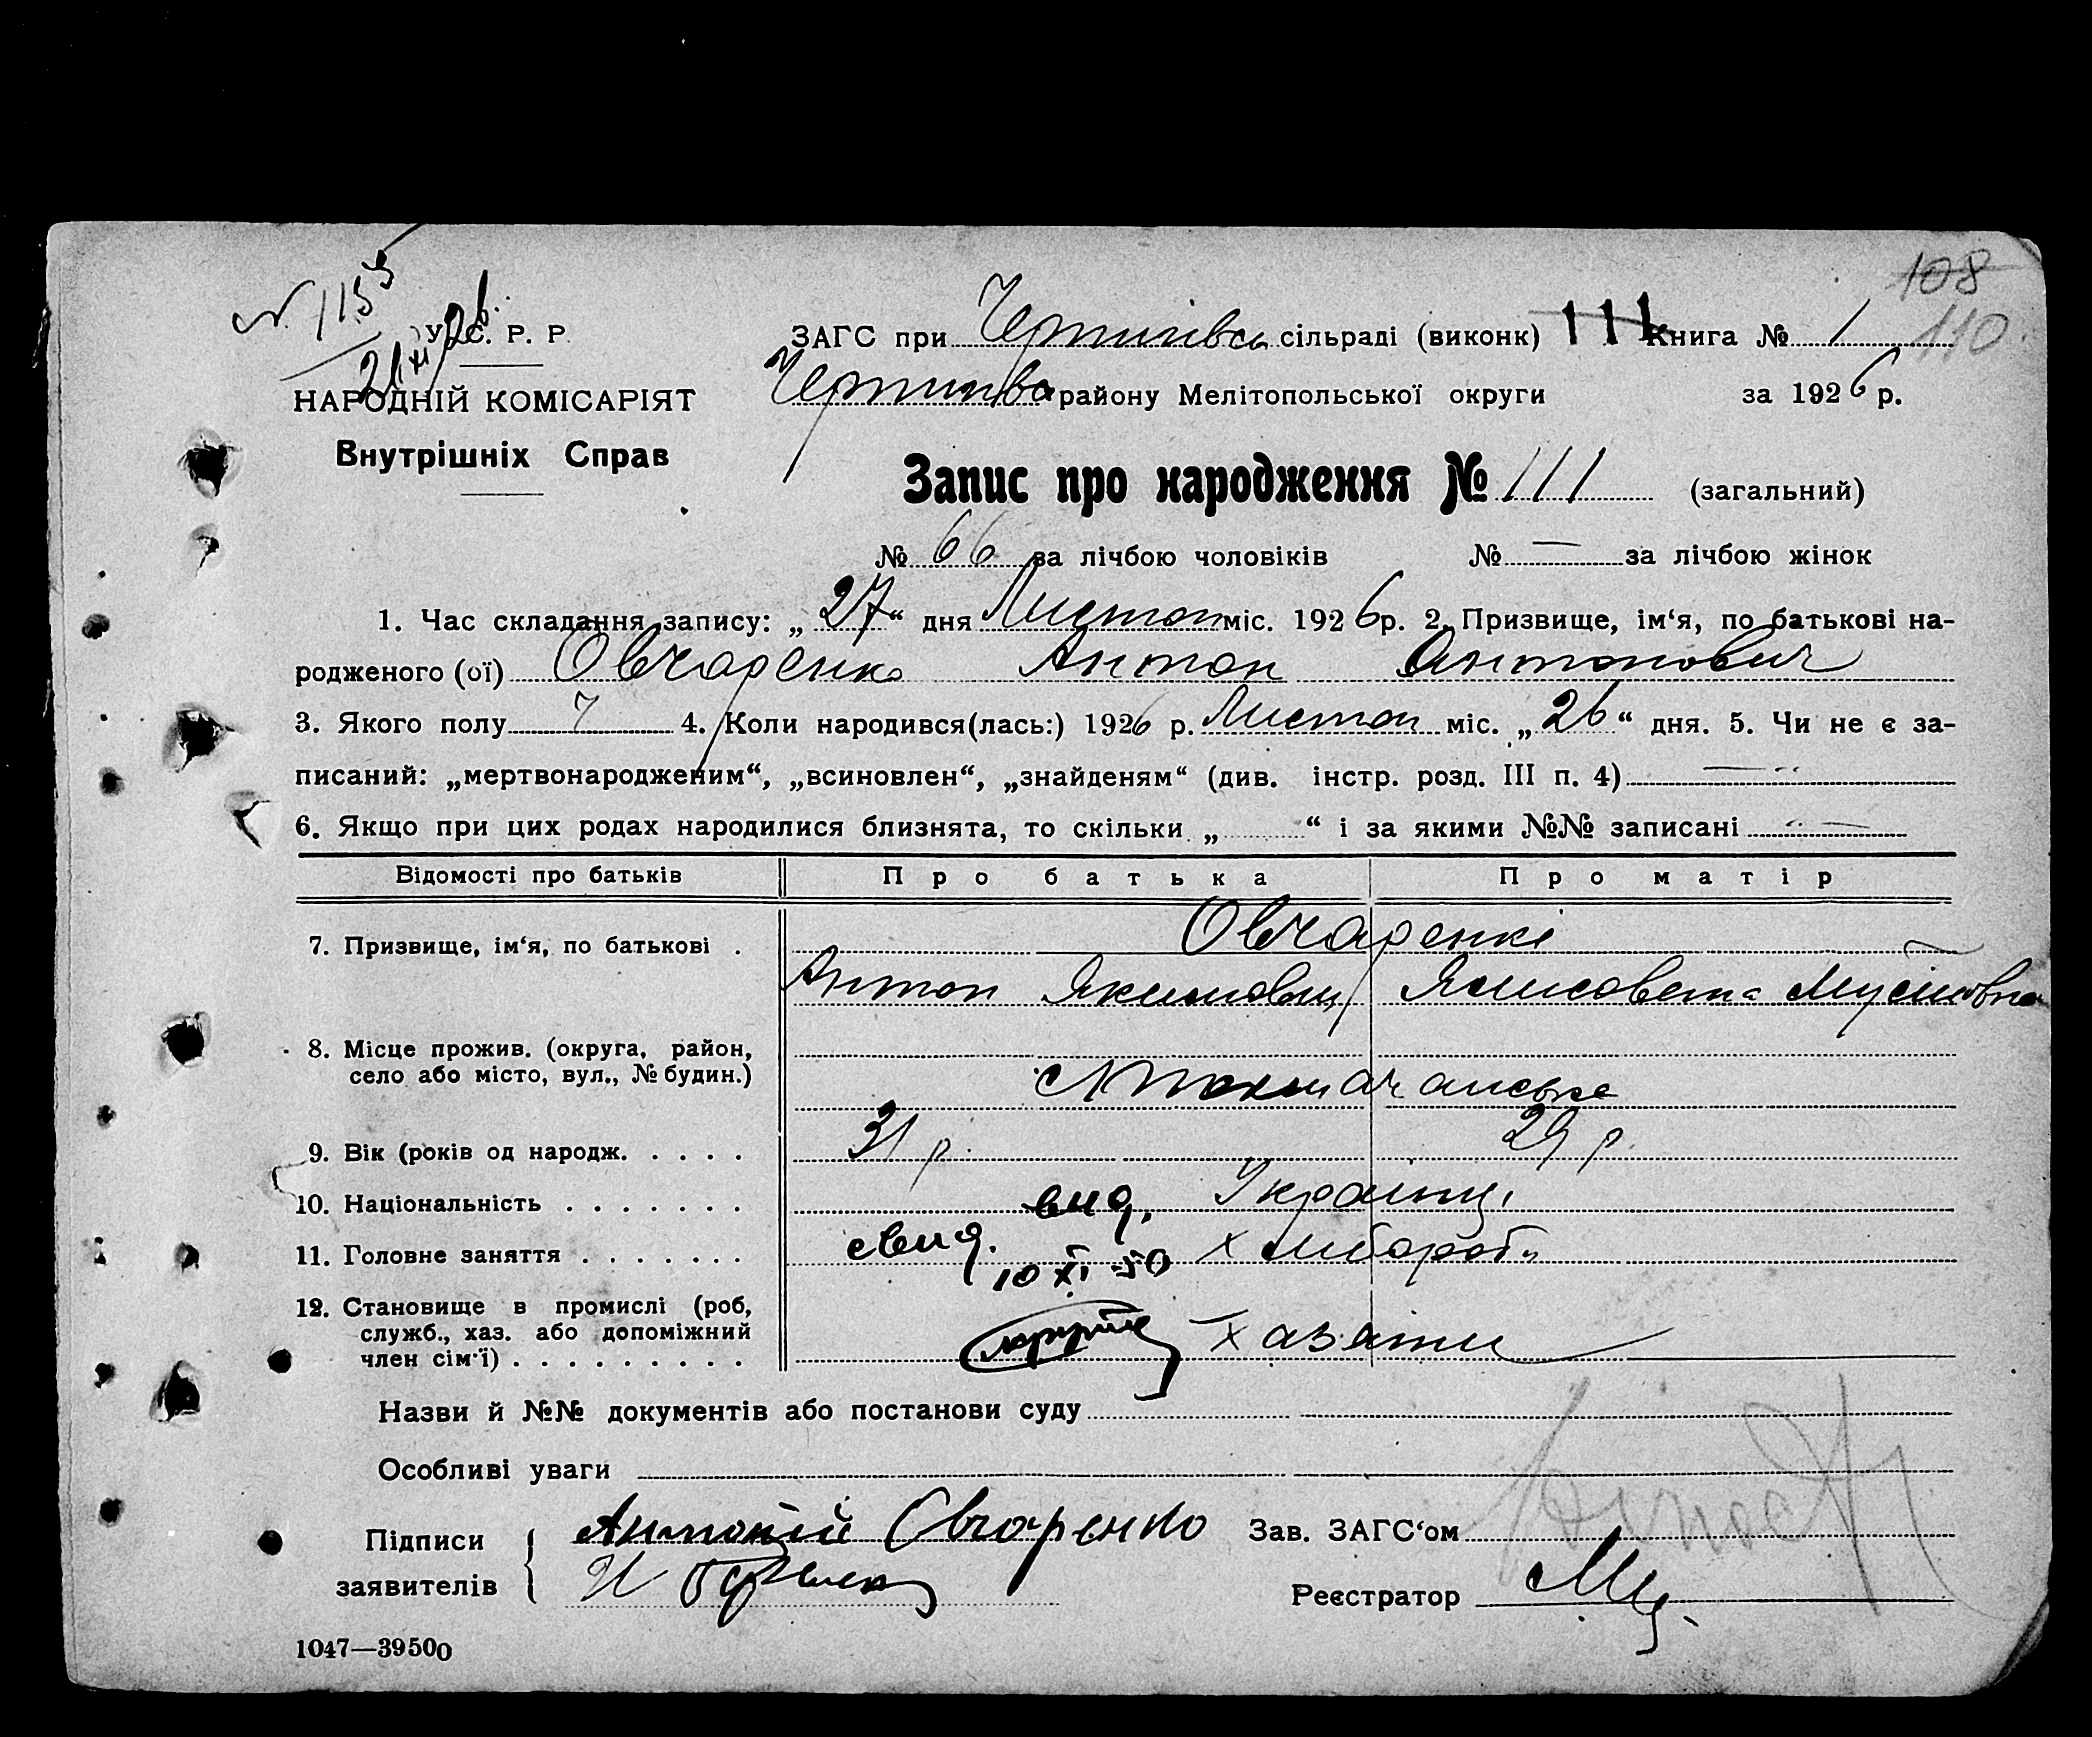 108
110
№ 1153
У. С. Р. Р.
НАРОДНІЙ КОМІСАРІЯТ
Внутрішніх Справ
ЗАГС при Чернигівсь сільраді (виконк) 111 Книга № 1
району Мелітопольської округи за 1926 р.
Запис про народження № 111 (загальний)
№ 66 за лічбою чоловіків № — за лічбою жінок
1. Час складання запису: „27“ дня Листоп міс. 1926 р. 2. Призвище, ім‘я, по батькові на-
родженого (ої) Овчаренко Антон Антонович
3. Якого полу ч 4. Коли народився(лась:) 1926 р. Листоп міс. „26“ дня. 5. Чи не є за-
писаний: „мертвонародженим“, „всиновлен“, „знайденям“ (див. інстр. розд. III п. 4) —
6. Якщо при цих родах народилися близнята, то скільки „ “ і за якими №№ записані —
Відомості про батьків Про батька Про матір
7. Призвище, ім‘я, по батькові . Овчаренкі
Антон Якимович Мусіївна
8. Місце прожив. (округа, район,
село або місто, вул., № будин.)
9. Вік (років од народж. . . . . 31 р. 29 р.
10. Національність . . . . . . . вид. Українці
11. Головне заняття . . . . . . . свид. 10 XI-50 Хлибороби
12. Становище в промислі (роб,
служб., хаз. або допоміжний
член сім‘ї) . . . . . . . . . Хазяїни
Назви й №№ документів або постанови суду
Особливі уваги
Підписи
заявителів
Антоній Овчаренко
Зав. ЗАГС‘ом
Реєстратор
1047—39500